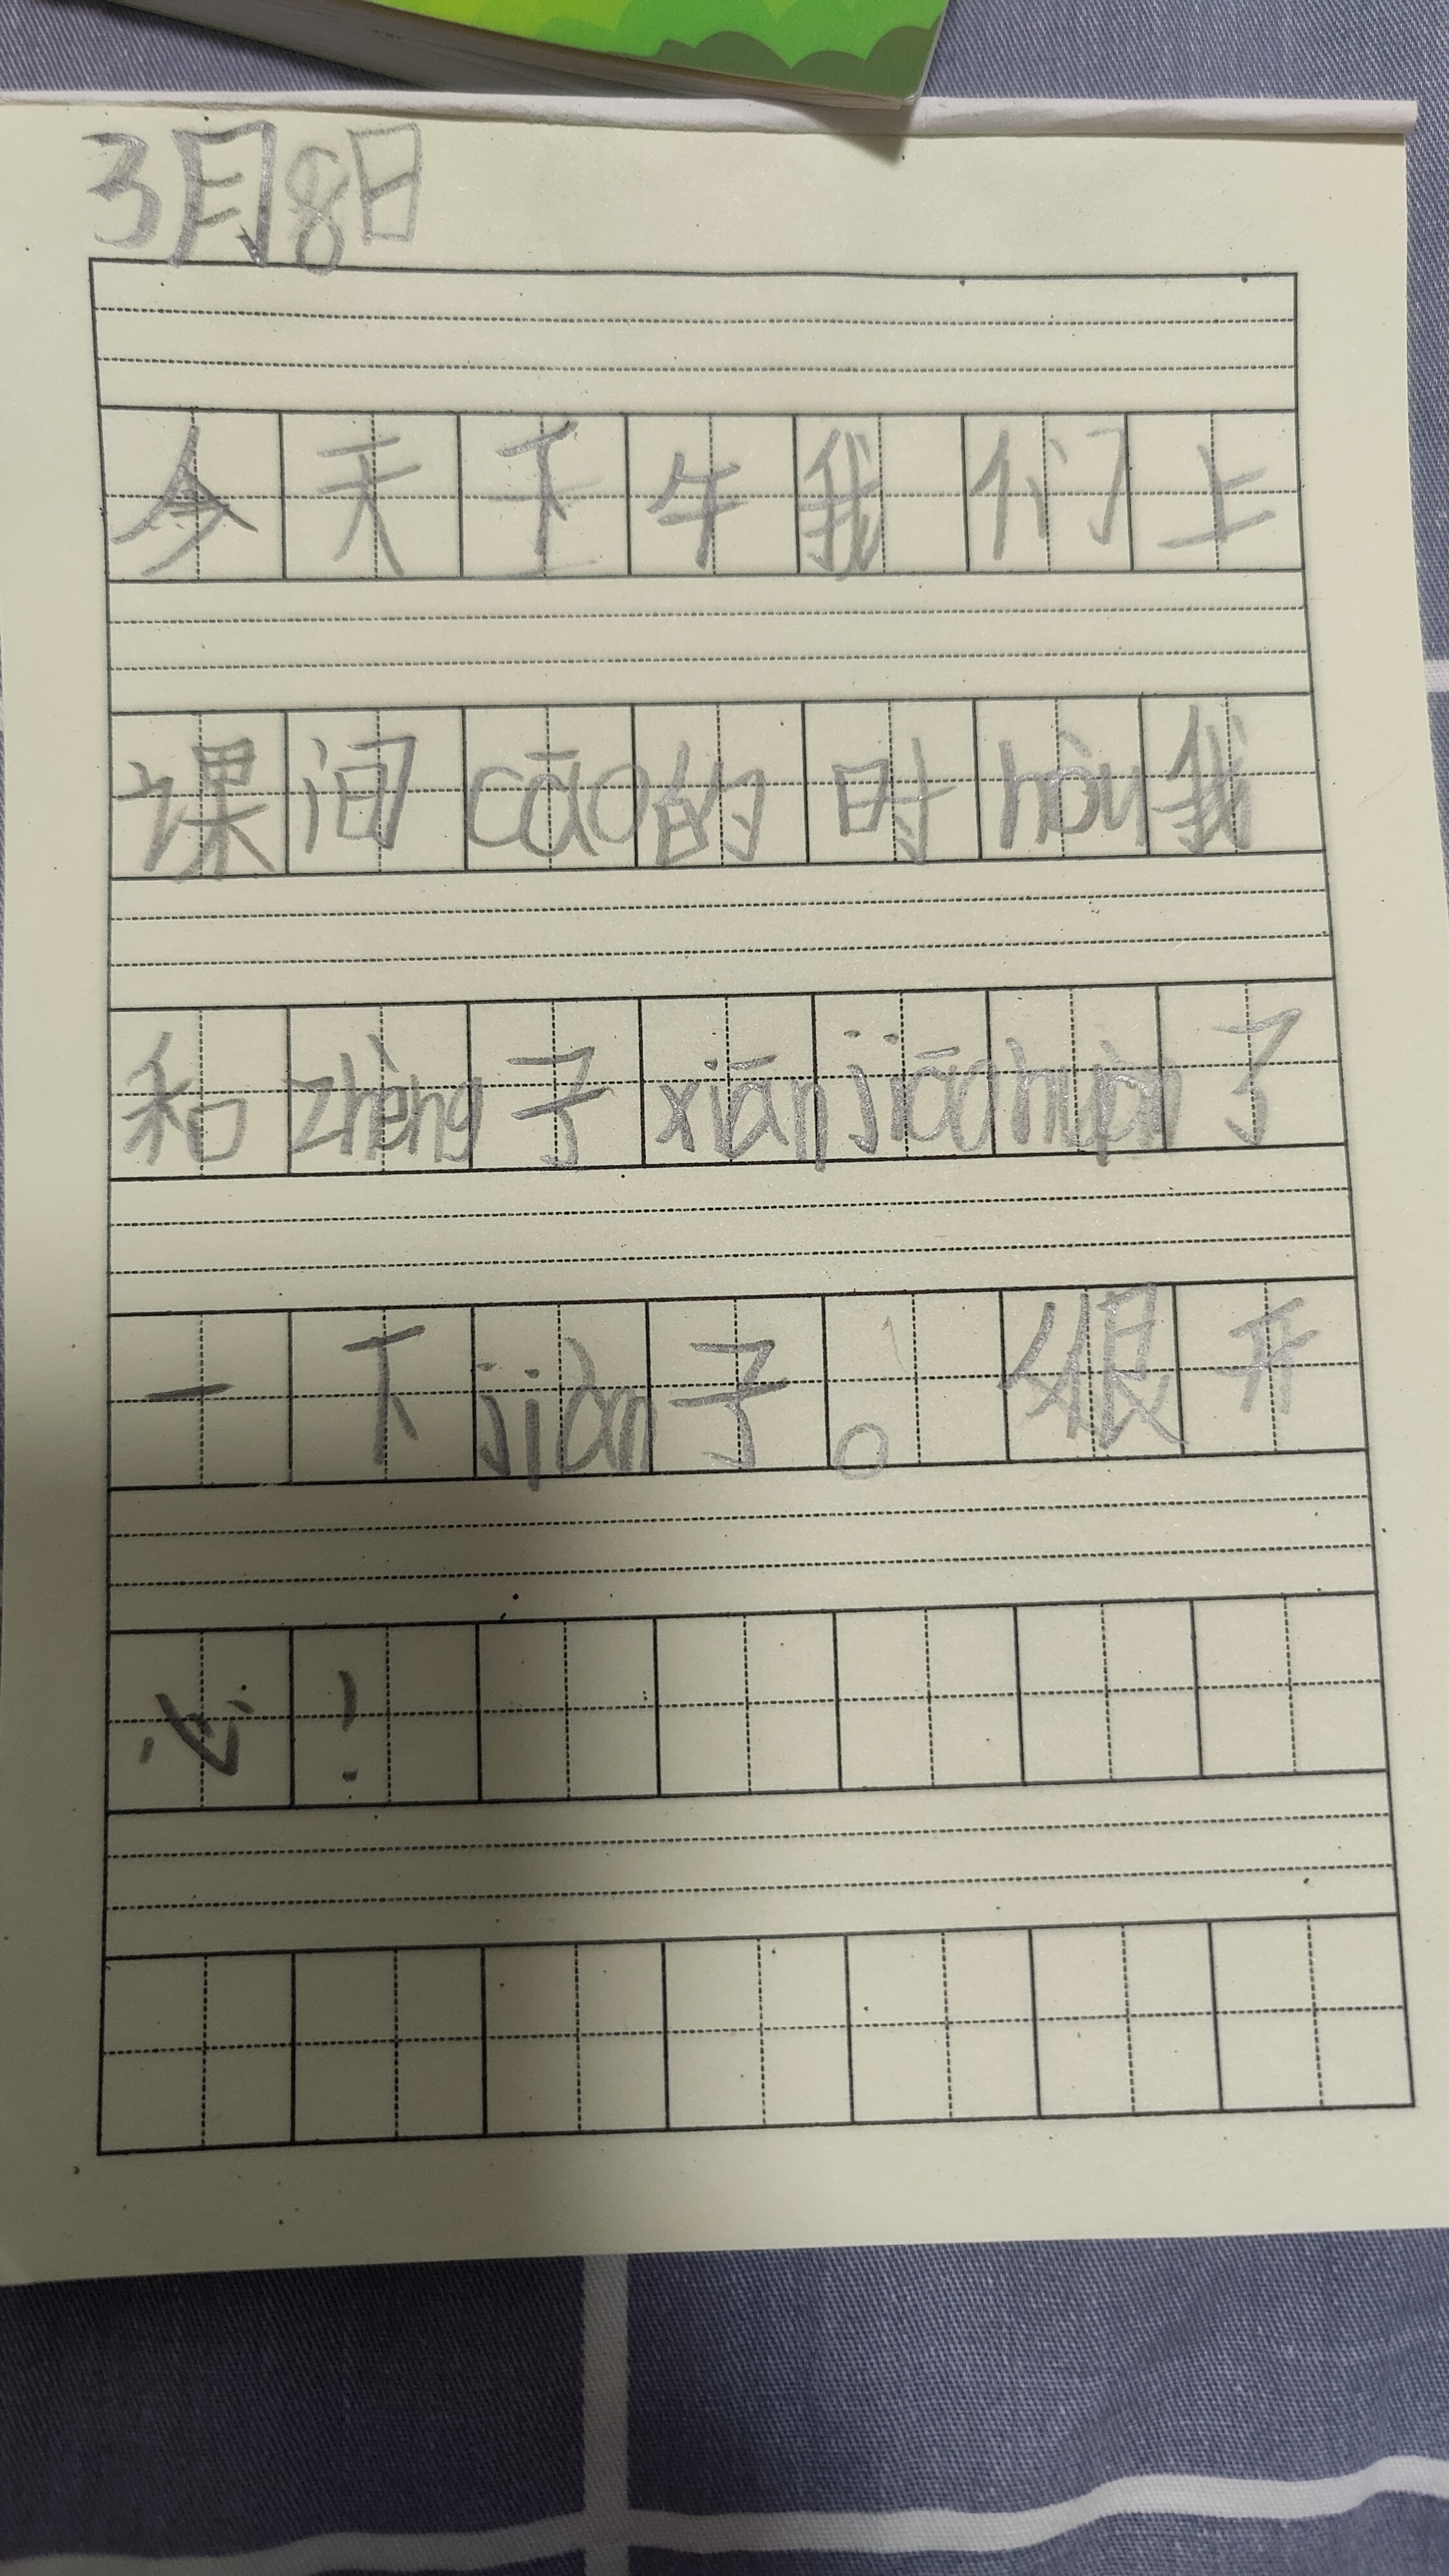 3月8日
今天下午我们上
课间cāo的时hòu我
和zhèng子xiānjiāohuàn了
一下jiàn子。很开
心!